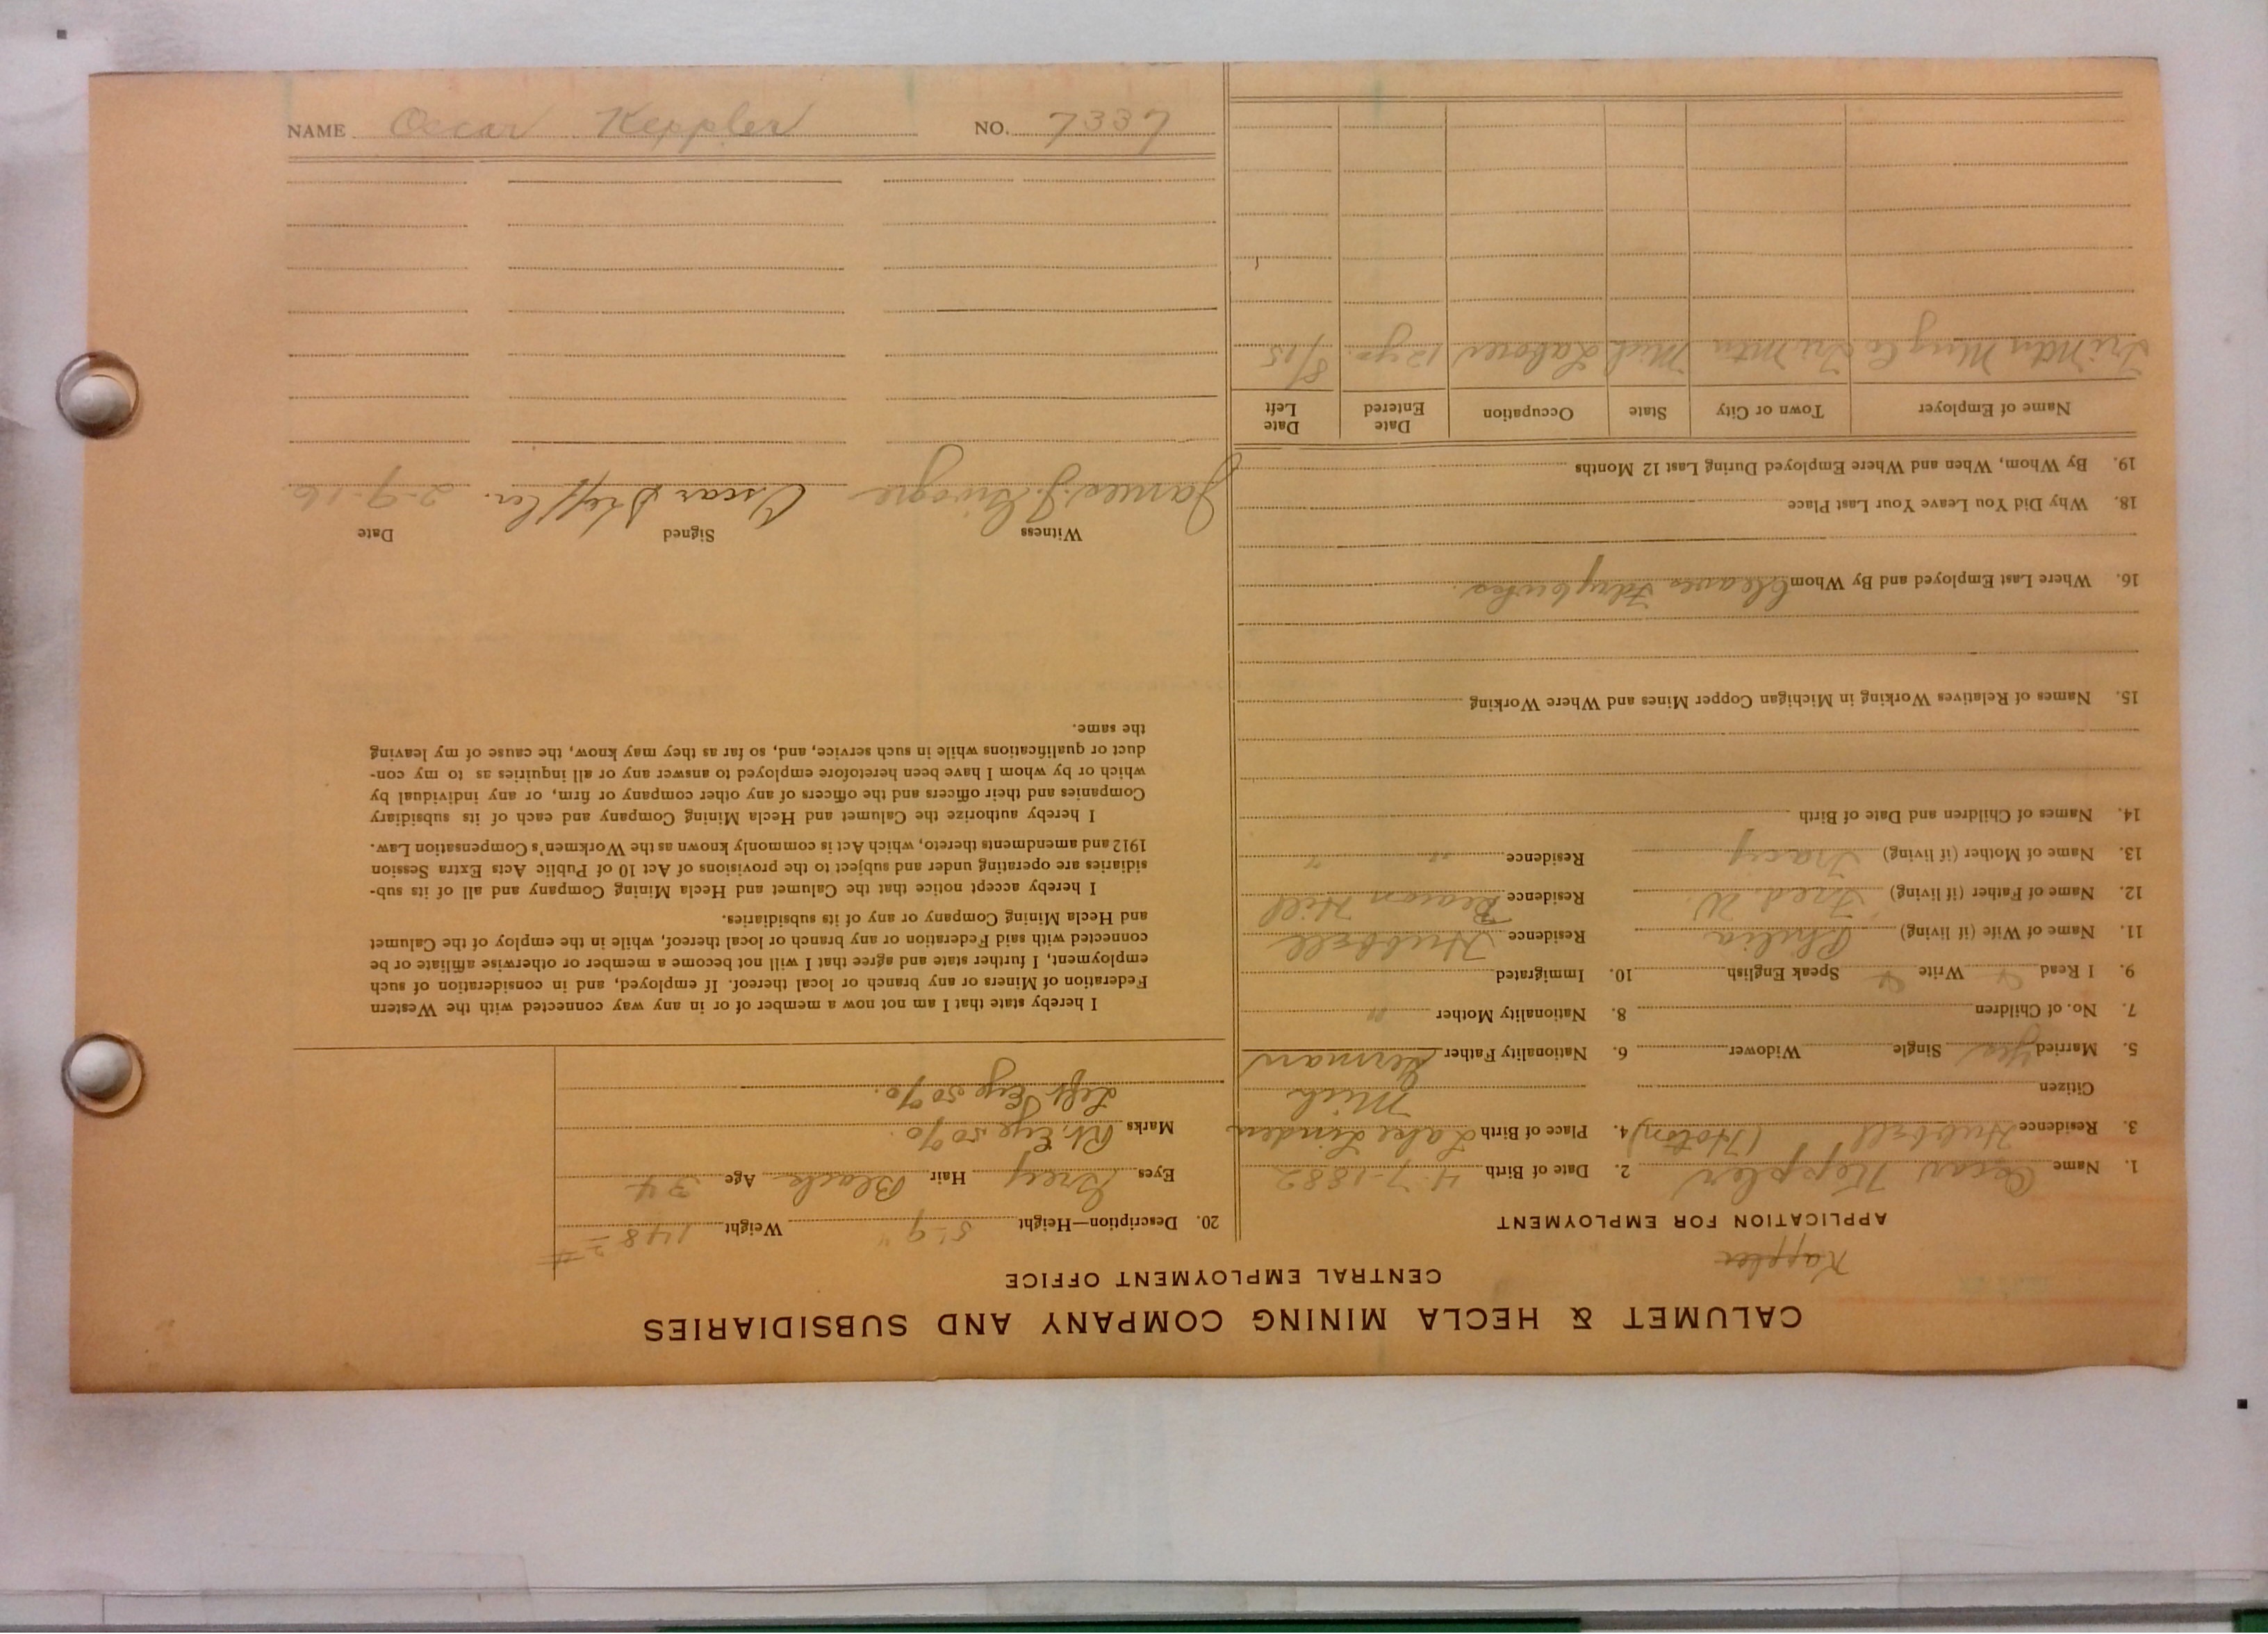 NAME Oscar Keppler NO. 7337
CALUMET & HECLA MINING COMPANY AND SUBSIDIARIES
CENTRAL EMPLOYMENT OFFICE
Kappler
APPLICATION FOR EMPLOYMENT
1. Name Oscar Keppler 2. Date of Birth 4-7-1882
3. Residence Hubbell (Hoton) 4. Place of Birth Lake Linden
Citizen Mich
5. Married Yes Single Widower 6. Nationality Father German
7. No. of Children 8. Nationality Mother "
9. I Read Write Speak English 10. Immigrated
11. Name of Wife (if living) Philia Residence Hubbell
12. Name of Father (if living) Fred. W. Residence Beacon Hill
13. Name of Mother (if living) Tracy Residence " "
14. Names of Children and Date of Birth
15. Names of Relatives Working in Michigan Copper Mines and Where Working
16. Where Last Employed and By Whom
18. Why Did You Leave Your Last Place
19. By Whom, When and Where Employed During Last 12 Months
Name of Employer Town or City State Occupation Date Entered Date Left
Tri Mtn Mng Co Tri Mtn Mich Laborer 12 yrs. 8/15
20. Description—Height 5'-9" Weight 148 #
Eyes Grey Hair Black Age 34
Marks Rt. Eye 50%.
Left Eye 50%.
I hereby state that I am not now a member of or in any way connected with the Western
Federation of Miners or any branch or local thereof. If employed, and in consideration of such
employment, I further state and agree that I will not become a member or otherwise affiliate or be
connected with said Federation or any branch or local thereof, while in the employ of the Calumet
and Hecla Mining Company or any of its subsidiaries.
I hereby accept notice that the Calumet and Hecla Mining Company and all of its sub-
sidiaries are operating under and subject to the provisions of Act 10 of Public Acts Extra Session
1912 and amendments thereto, which Act is commonly known as the Workmen's Compensation Law.
I hereby authorize the Calumet and Hecla Mining Company and each of its subsidiary
Companies and their officers and the officers of any other company or firm, or any individual by
which or by whom I have been heretofore employed to answer any or all inquiries as to my con-
duct or qualifications while in such service, and, so far as they may know, the cause of my leaving
the same.
Witness Signed Date
James J. Oscar 2-9-16.